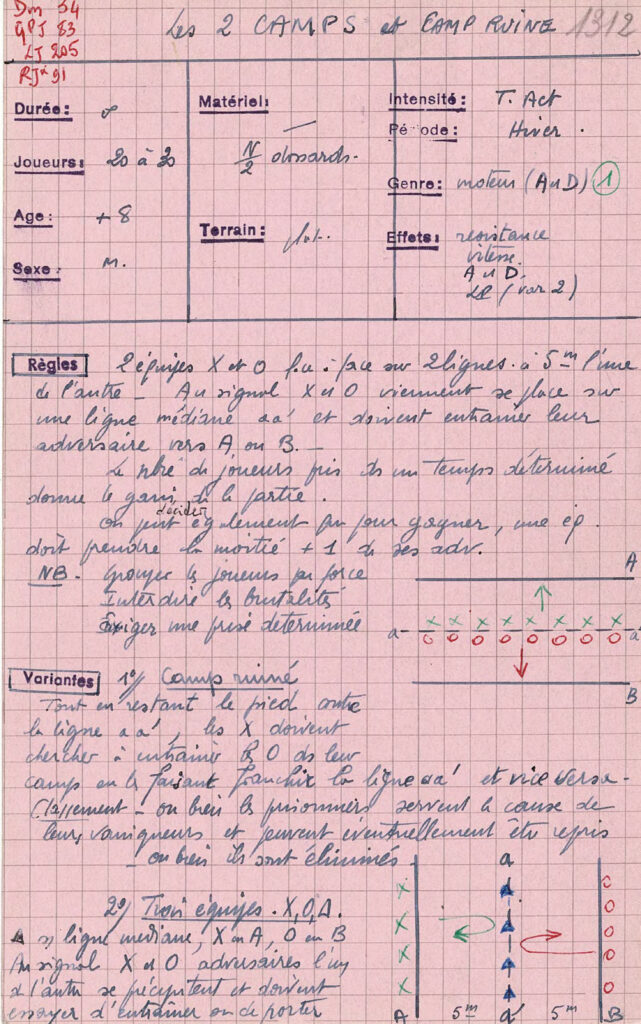 Dm 54
QPJ 83
LJ 205
RJx 91
Les 2 CAMPS et CAMP RUINE 1312
Durée :
Joueurs : 20 à 30
Age : + 8
Sexe : M.
Matériel :
N/2 dossards.
Terrain : plat.
Intensité : T. Act
Période : Hiver.
Genre : moteur (A u D) 1
Effets : résistance
vitesse
A u D.
(var 2)
Règles 2 équipes X et O face à face sur 2 lignes. à 5m l'une
de l'autre - Au signal X et O viennent se place sur
une ligne médiane aa' et doivent entraîner leur
adversaire vers A ou B. -
Le nbre de joueurs pris ds un temps déterminé
donne le gain de la partie.
décider
on peut également que pour gagner, une éq.
doit prendre la moitié + 1 de ses adv.
NB - Grouper les joueurs par force
Interdire les brutalités
Exiger une prise determinée
A
x x x x x x x
a a'
o o o o o o o o
B
Variantes 1°/ Camp ruiné
Tout en restant le pied contre
la ligne aa', les X doivent
chercher à entraîner les O ds leur
camp en les faisant franchir la ligne aa' et vice versa -
Classement - ou bien les prisonniers servent la cause de
leurs vainqueurs et peuvent éventuellement être repris
- ou bien ils sont éliminés.
2°/ Trois équipes. X, O, Δ.
Δ sr ligne mediane, X en A, O en B
Au signal X et O adversaires l'un
de l'autre se précipitent et doivent
essayer d'entraîner ou de porter
a
x x x x
o o o o o
A 5m a' 5m B